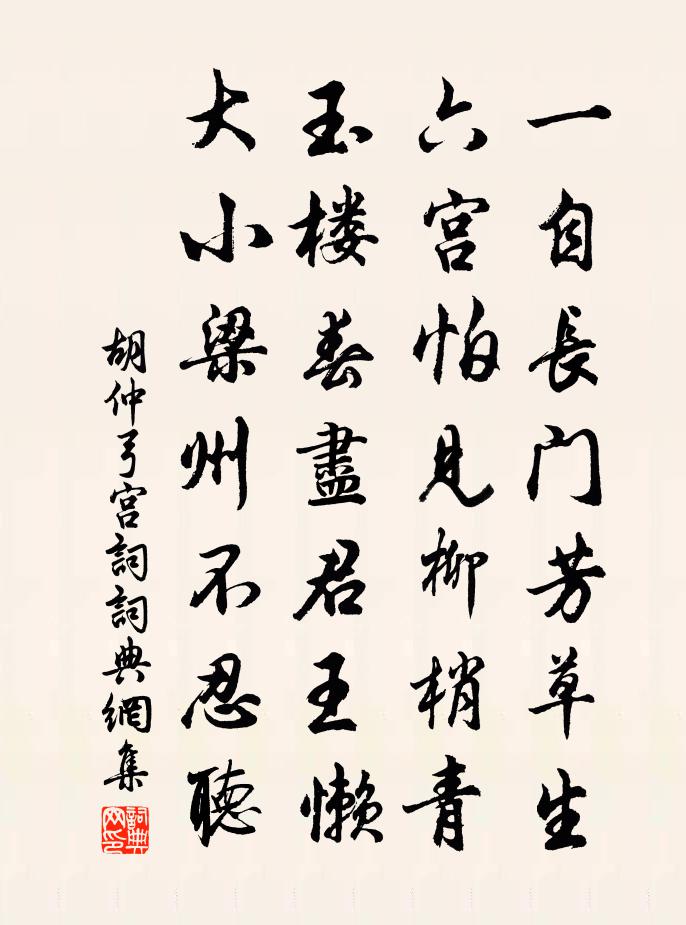 一自長門芳草生
六宫怕見柳梢青
玉楼春盡君王懒
大小梁州不忍聽
胡仲弓宫詞詞典網集
詞典網印